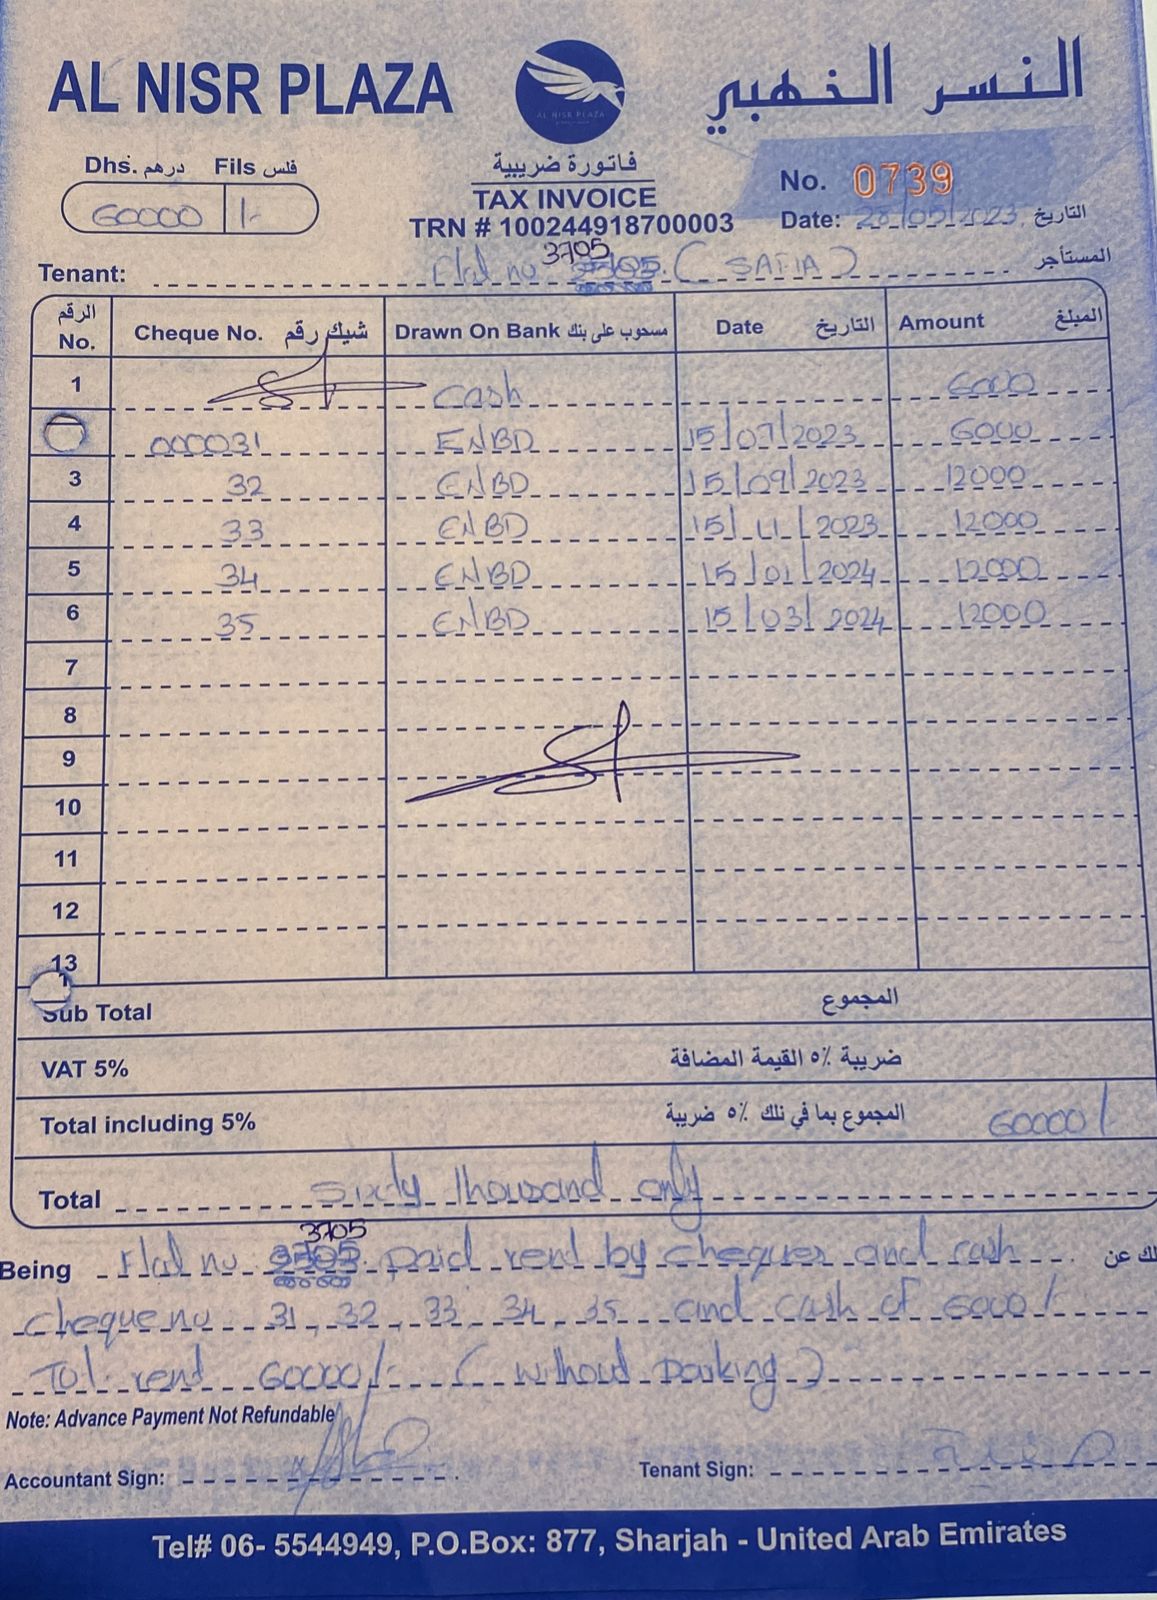 AL NISR PLAZA
النسر الذهبي
AL NISR PLAZA
Dhs. درهم Fils فلس
60000 /-
فاتورة ضريبية
TAX INVOICE
TRN # 100244918700003
No. 0739
Date: /2023 التاريخ
Tenant: Flat no 3705 (SAFIA) المستأجر
الرقم No. Cheque No. شيك رقم Drawn On Bank مسحوب على بنك Date التاريخ Amount المبلغ
1 Cash 6000
000031 ENBD 15/07/2023 6000
3 32 ENBD 15/09/2023 12000
4 33 ENBD 15/11/2023 12000
5 34 ENBD 15/01/2024 12000
6 35 ENBD 15/03/2024 12000
7
8
9
10
11
12
13
Sub Total المجموع
VAT 5% ضريبة ٥٪ القيمة المضافة
Total including 5% المجموع بما في ذلك ٥٪ ضريبة 60000/
Total Sixty thousand only
Being Flat no 3705 paid rent by cheques and cash لك عن
cheque no 31, 32, 33, 34, 35 and cash of 6000/-
Tot. rent 60000/- (without parking)
Note: Advance Payment Not Refundable
Accountant Sign:
Tenant Sign:
Tel# 06- 5544949, P.O.Box: 877, Sharjah - United Arab Emirates